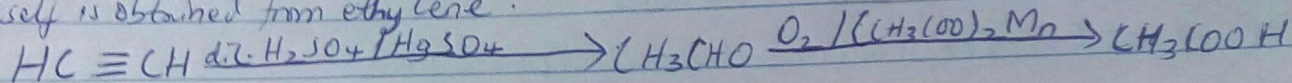 self is obtained from ethylene.
HC ≡ CH dil. H₂SO₄/HgSO₄ → CH₃CHO O₂/(CH₃COO)₂Mn → CH₃COOH